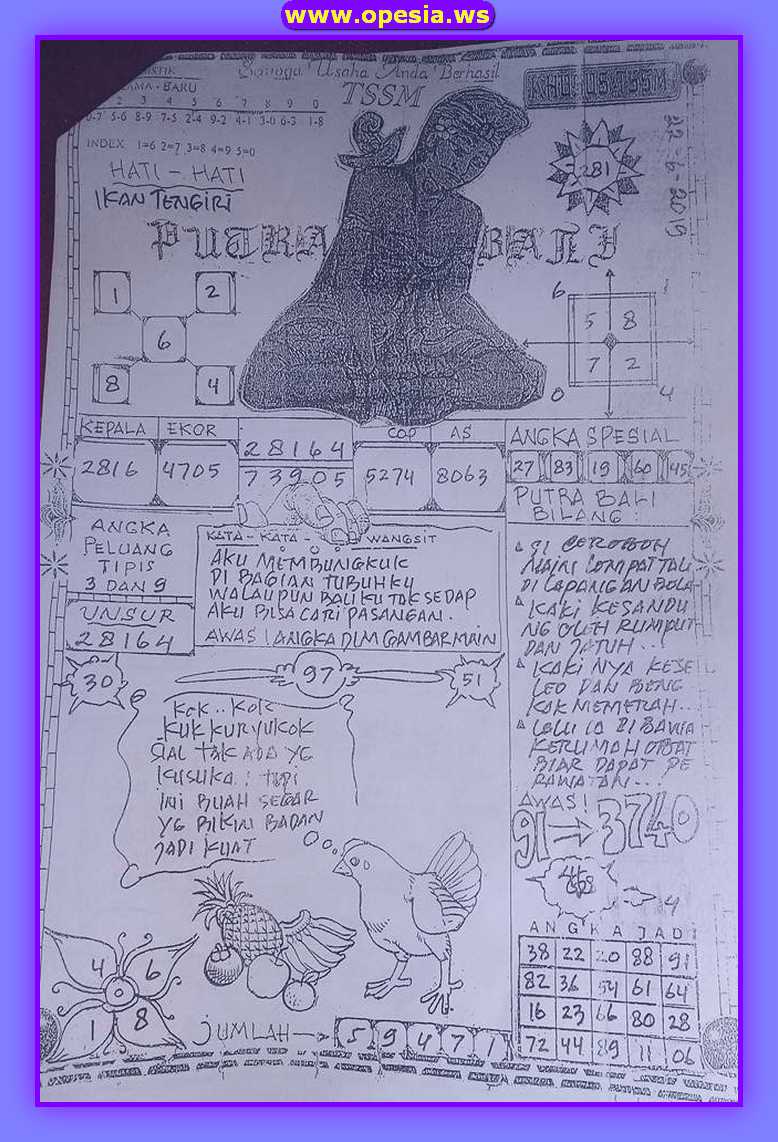 www.opesia.ws
Semoga Usaha Anda Berhasil
TSSM
KHUSUS TSSM
22-6-2019
AMA - BARU
2 3 4 5 6 7 8 9 0
0-7 5-6 8-9 7-5 2-4 9-2 4-1 3-0 6-3 1-8
INDEX 1=6 2=7 3=8 4=9 5=0
HATI - HATI
IKAN TENGIRI
281
PUTRA BALI
1 2
6
8 4
6 1
5 8
7 2
0 4
KEPALA EKOR COP AS
2816 4705 28164 5274 8063
73905
ANGKA SPESIAL
27 83 19 60 45
ANGKA
PELUANG
TIPIS
3 DAN 9
UNSUR
28164
KATA - KATA - WANGSIT
AKU MEMBUNGKUK
DI BAGIAN TUBUHKU
WALAUPUN BALIKU TAK SEDAP
AKU BISA CARI PASANGAN.
AWAS! ANGKA DLM GAMBAR MAIN
PUTRA BALI
BILANG :
SI CEROBOH
MAIN LOMPAT TALI
DI LAPANGAN BOLA
KAKI KESANDU
NG OLEH RUMPUT
DAN JATUH...
KAKI NYA KESE
LEO DAN BENG
KAK MEMERAH...
LALU IA DI BAWA
KERUMAH OBAT
BIAR DAPAT PE
RAWATAN...
AWAS!
91 3740
4
30 97 51
KOK..KOK
KUKKURYUKOK
SIAL TAK ADA YG
KUSUKA : TAPI
INI BUAH SEGAR
YG BIKIN BADAN
JADI KUAT
4 6
1 8
JUMLAH 5 9 4 7 1
ANGKA JADI
38 22 20 88 91
82 36 54 61 64
16 23 66 80 28
72 44 89 11 06